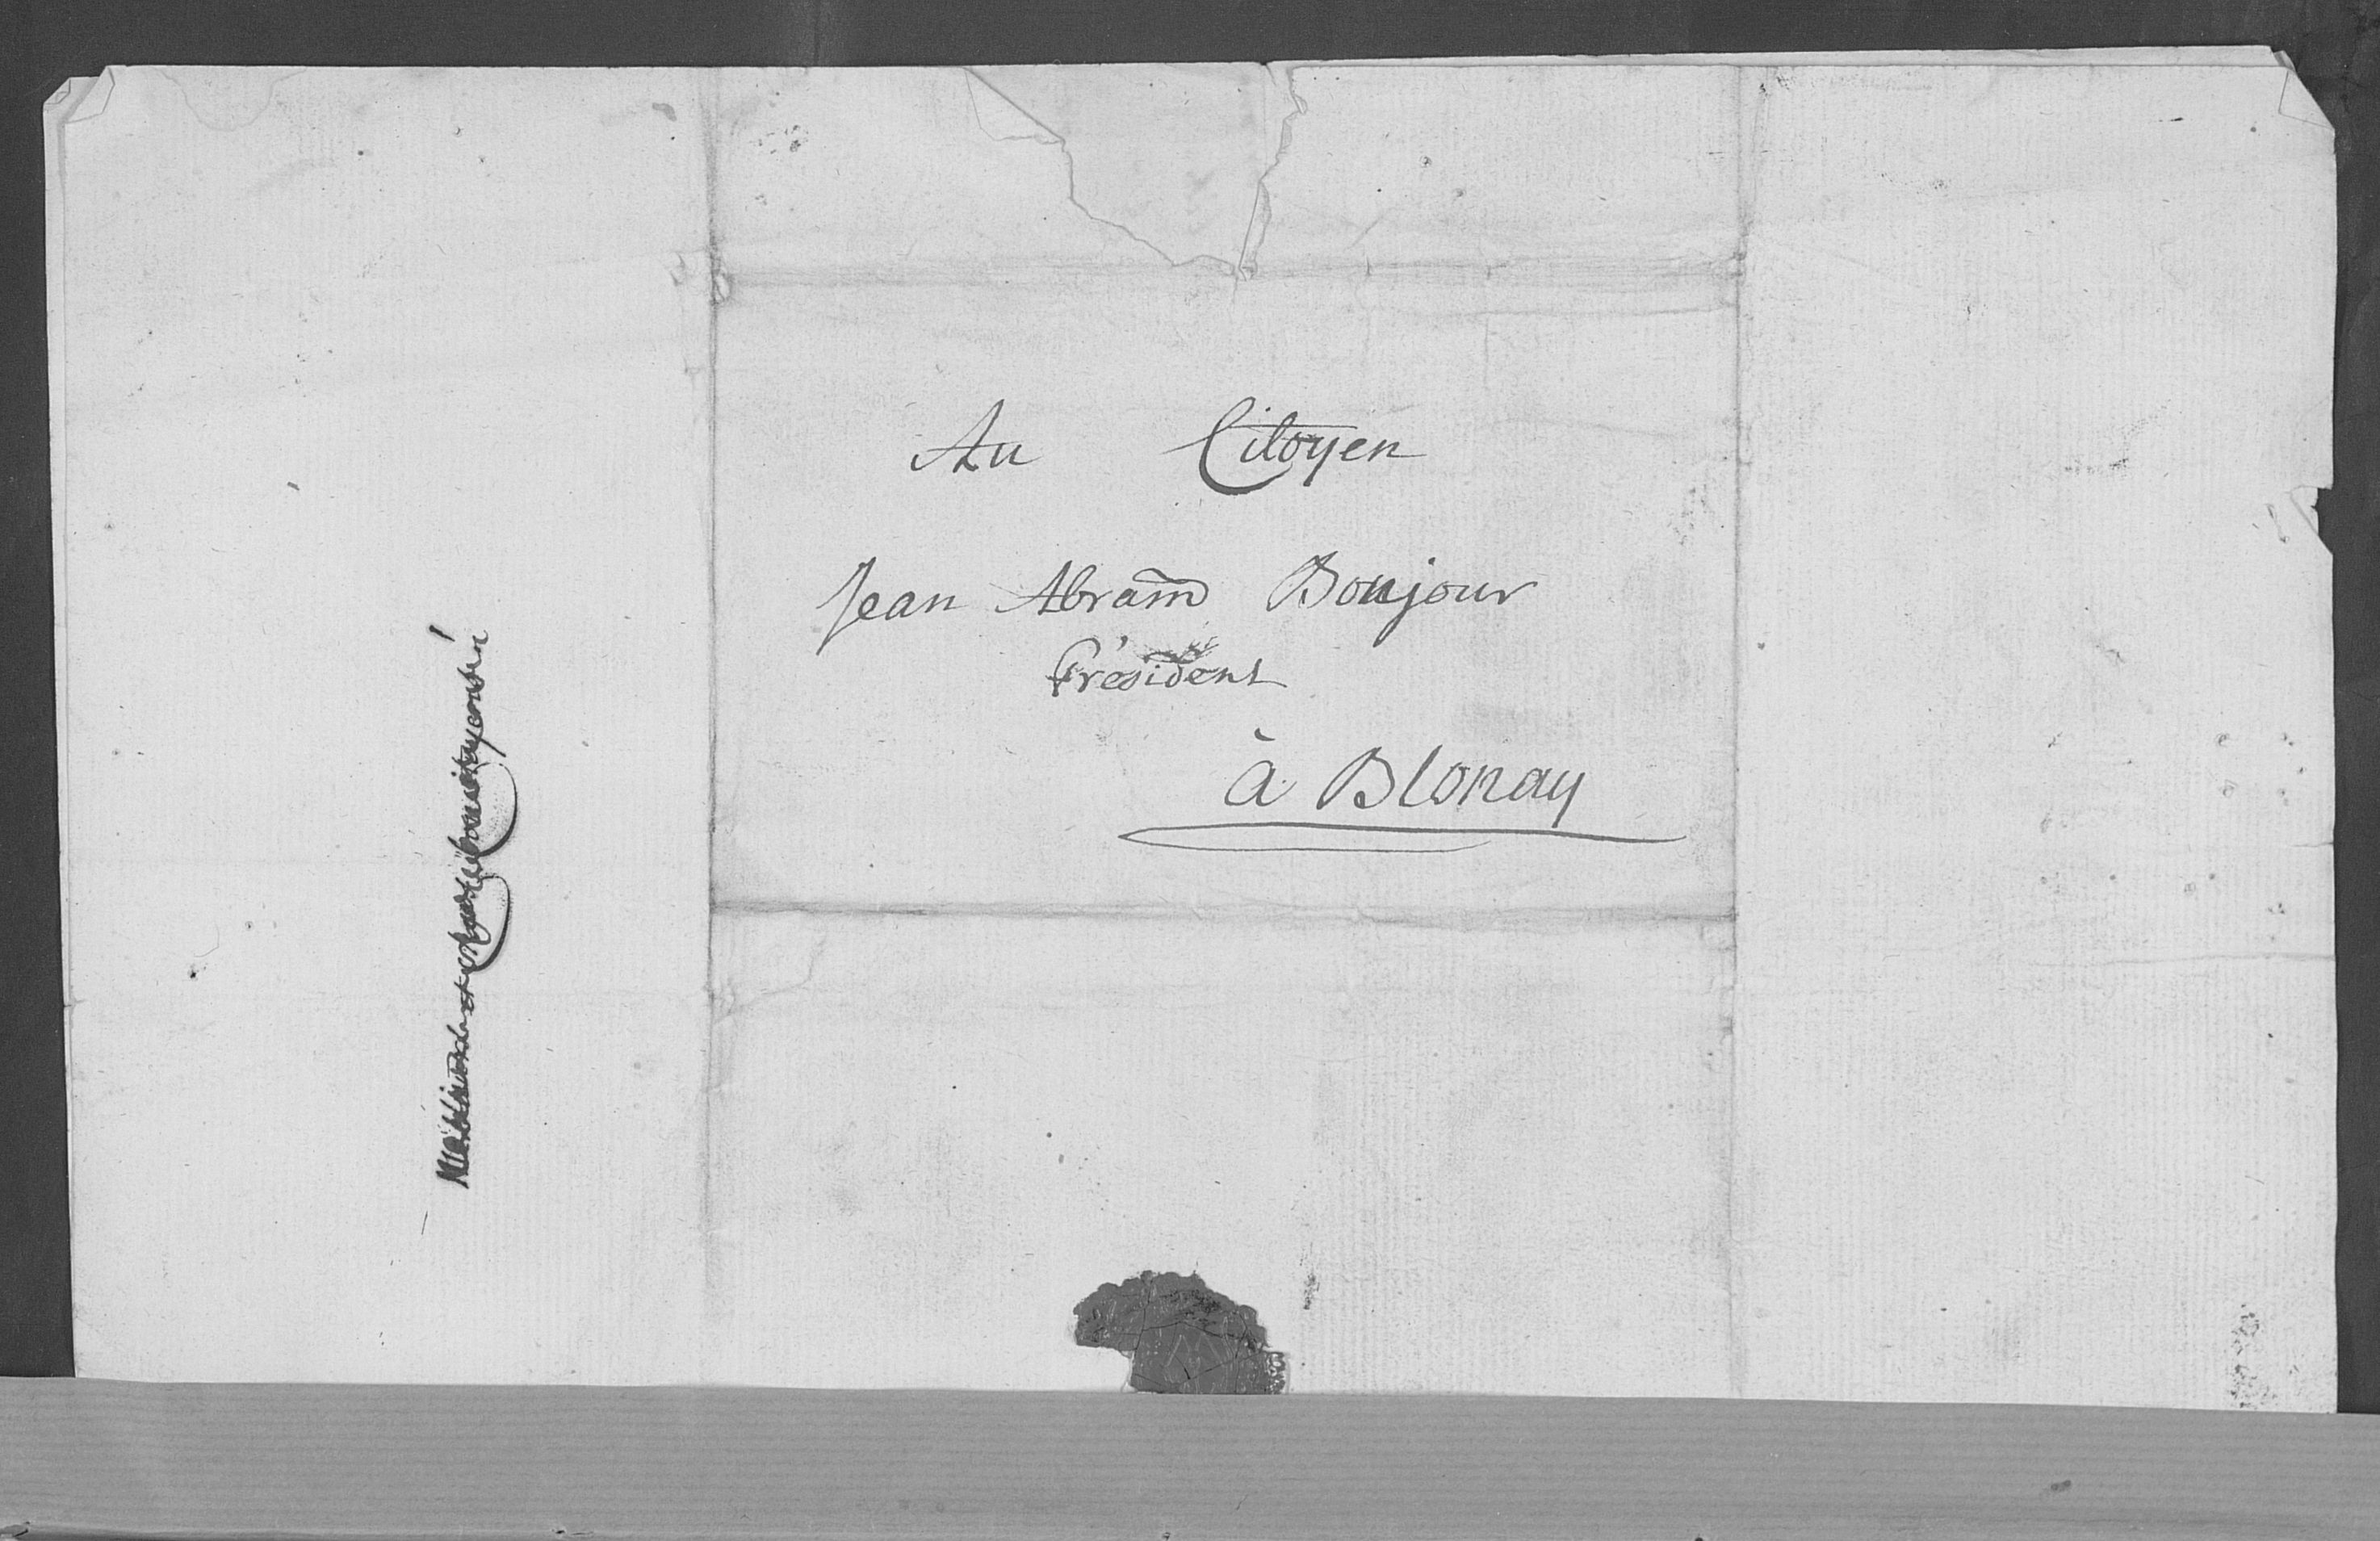 Au Citoyen
Jean Abram Bonjour
Président
à Blonay